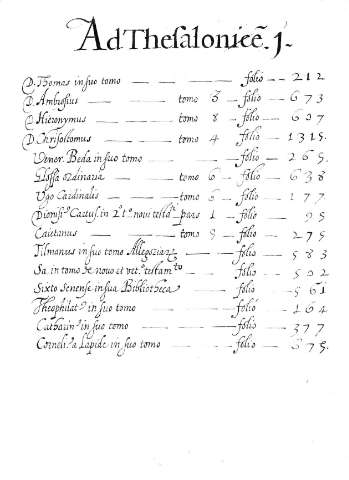 Ad Thesalonicẽ. 1.
D. Thomas in suo tomo — folio — 212
D. Ambrosius — tomo 3 — folio — 673
D. Hieronymus — tomo 8 — folio — 607
D. Chrisostomus — tomo 4 — folio — 1315.
Vener. Beda in suo tomo — folio — 265.
Glossa ordinaria — tomo 6 — folio — 638
Ugo Cardinalis — tomo 6 — folio — 177
Dionisi⁹ Cartus. in pars 1 — folio — 95
Caietanus — tomo 9 — folio — 275
Tilmanus in suo tomo Allegoriar — folio — 583
Sa. in tomo de novo et vet. testam.to — folio — 502
Sixto Senense in sua Bibliotheca — folio — 561
Theophilat⁹ in suo tomo — folio — 164
Catharin⁹ in suo tomo — folio — 377
Corneli⁹ a Lapide in suo tomo — folio — 675.